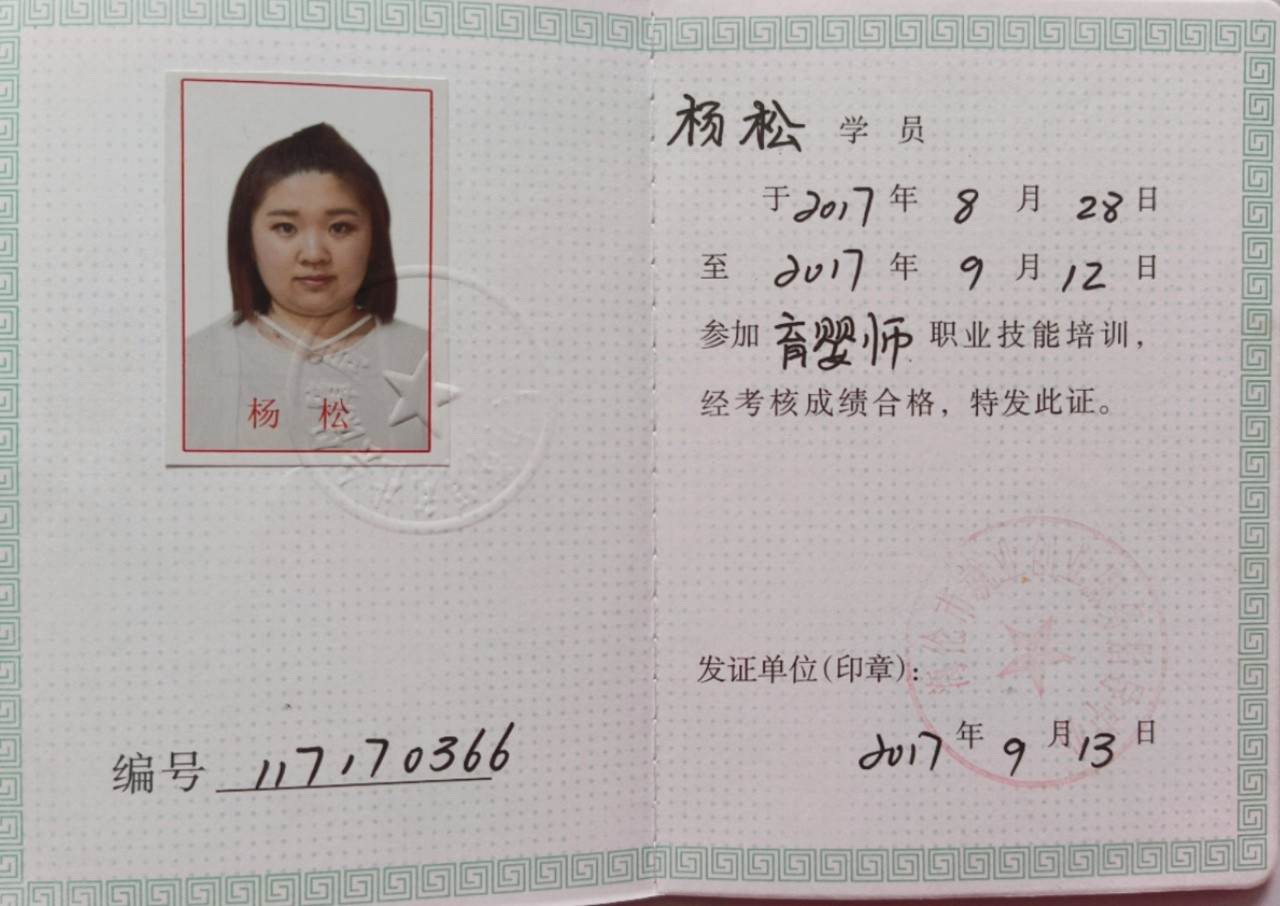 杨 松
编号 117170366
杨松 学员
于2017年 8月 28日
至 2017年 9月 12日
参加 育婴师 职业技能培训，
经考核成绩合格，特发此证。
海伦市就业
发证单位(印章)：
2017年 9月 13日